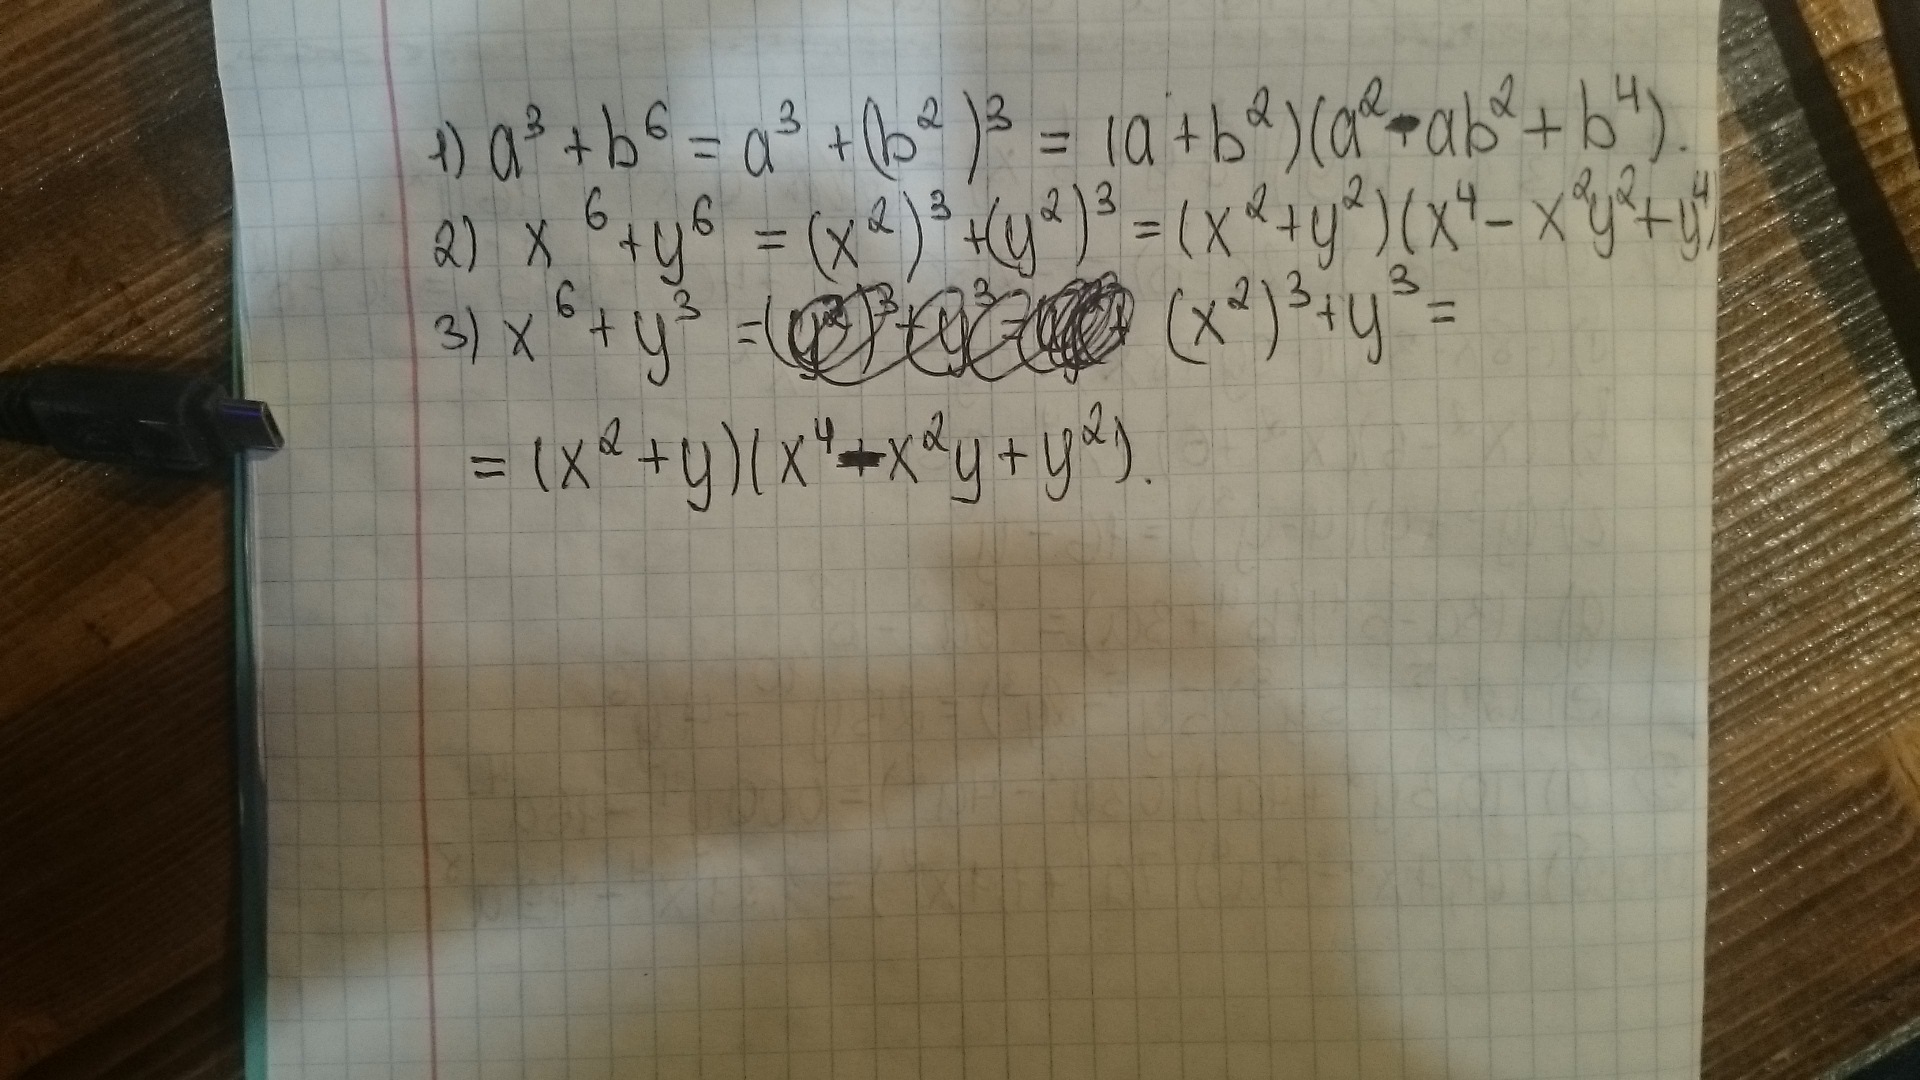 1) a³ + b⁶ = a³ + (b²)³ = (a + b²)(a² - ab² + b⁴).
2) x⁶ + y⁶ = (x²)³ + (y²)³ = (x² + y²)(x⁴ - x²y² + y⁴)
3) x⁶ + y³ = (x²)³ + y³ =
= (x² + y)(x⁴ - x²y + y²).